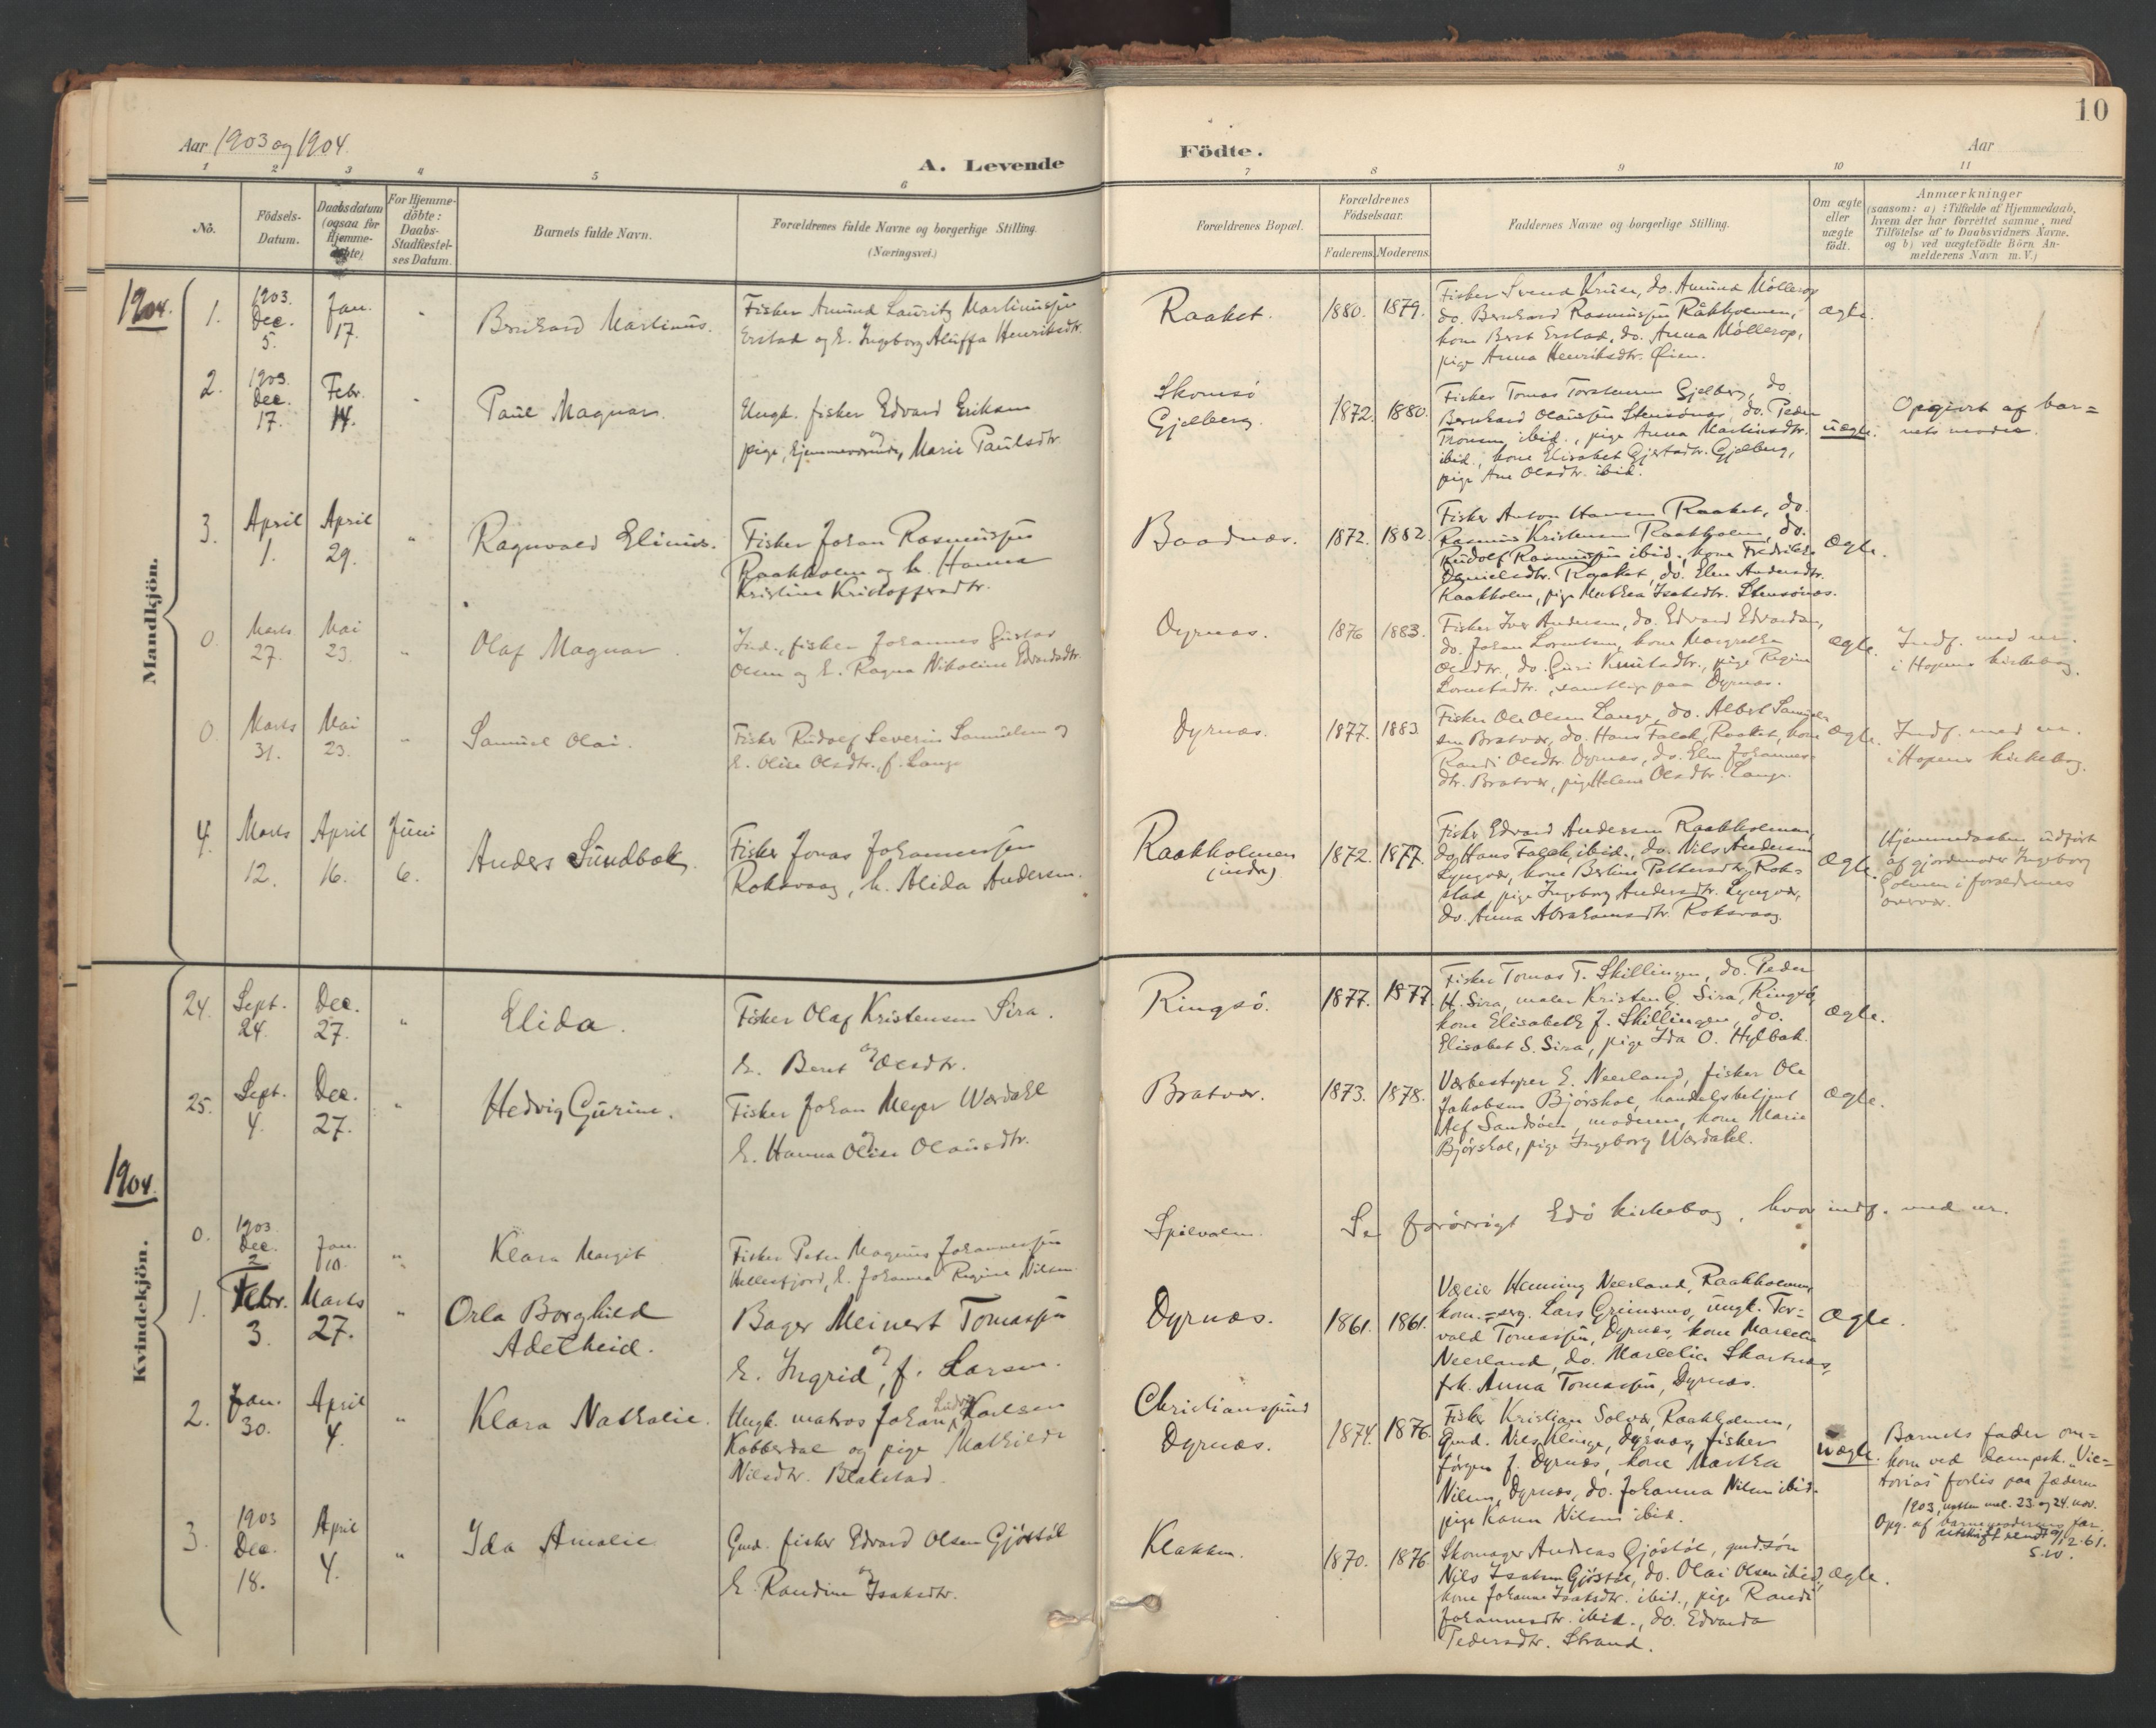 10
Aar 1903 og 1904.
A. Levende Födte.
Aar
1 2 3 4 5 6 7 8 9 10 11
No.
Födsels-
Datum.
Daabsdatum
(ogsaa for
Hjemme-
døbte)
For Hjemme-
döbte:
Daabs-
Stadfæstel-
ses Datum.
Barnets fulde Navn.
Forældrenes fulde Navne og borgerlige Stilling.
(Næringsvei.)
Forældrenes Bopæl.
Forældrenes
Födselsaar.
Faderens. Moderens.
Faddernes Navne og borgerlige Stilling.
Om ægte
eller
uægte
födt.
Anmærkninger
(saasom: a) i Tilfælde af Hjemmedaab,
hvem der har forrettet samme, med
Tilföielse af to Daabsvidners Navne.
og b) ved uægtefödte Börn An-
melderens Navn m. V.)
Mandkjön.
1904.
1.
1903.
Dec.
5.
Jan.
17.
Bernhard Martinus.
Fisker Amund Lauritz Martinussen
Erstad og h. Ingeborg Aluffa Henriksdtr.
Raaket.
1880. 1879.
Fisker Svend Kruse, do. Amund Möllerop
do. Bernhard Rasmussen Råkholmen,
kone Berit Erstad, do. Anna Möllerop,
pige Anna Henriksdtr. Øien.
ægte.
2.
1903.
Dec.
17.
Febr.
14.
Paul Magnar.
Ungk. fisker Edvard Eriksen
og
pige, hjemmeværende, Marie Paulsdtr.
Skomsö
Gjelberg.
1872. 1880.
Fisker Tomas Torstensen Gjelberg, do
Bernhard Olaussen Stensönes, do. Peder
Tronsen ibid., pige Anna Martinsdtr.
ibid., kone Elisabet Gjertsdtr. Gjelberg,
pige Ane Olsdtr. ibid.
uægte.
Opgivet af bar=
nets moder.
3.
April
1.
April
29.
"
Ragnvald Elinus.
Fisker Johan Rasmussen
Raakholm og h. Hanna
Kristine Kristoffersdtr.
Baadnæs.
1872. 1882.
Fisker Anton Hansen Raaket, do.
Rasmus Kristensen Raakholm, do.
Rudolf Rasmussen ibid., kone Fredrikke
Danielsdtr. Raaket, do. Elen Andersdtr.
Raakholm, pige Mathea Isaksdtr. Stensönes.
ægte.
0.
Marts
27.
Mai
23.
"
Olaf Magnar.
Ind., fisker Johannes Gustav
Olsen og h. Ragna Nikoline Edvardsdtr.
Dyrnæs.
1876 1883.
Fisker Iver Andersen, do. Edvard Edvardsen,
do. Johan Lorentsen, kone Margrethe
Olsdtr., do. Guri Knutsdtr., pige Regine
Lorentsdtr., samtlige paa Dyrnæs.
ægte.
Indf. med nr.
i Hopens kirkebog.
0.
Marts
31.
Mai
23.
"
Samuel Olai.
Fisker Rudolf Severin Samuelsen og
h. Olise Olsdtr., f. Lange
Dyrnæs.
1877. 1883.
Fisker Ole Olsen Lange, do. Albert Samuel-
sen Bratvær, do. Hans Falch, Raaket, kone
Randi Olsdtr. Dyrnæs, do. Elen Johannes-
dtr. Bratvær, pige Helene Olsdtr. Lange.
ægte.
Indf. med nr.
i Hopens kirkebog.
4.
Marts
12.
April
16.
Juni
6.
Anders Sundbak.
Fisker Jonas Johannessen
Roksvaag, h. Alida Andersen.
Raakholmen
(indre)
1872. 1877.
Fisker Edvard Andersen Raakholmen,
do. Hans Falch, ibid., do. Nils Andersen
Lyngvær, kone Berline Pettersdtr. Rok-
stad, pige Ingeborg Andersdtr. Lyngvær,
do. Anna Abrahamsdtr. Roksvaag.
ægte.
Hjemmedaaben udfört
af gjordmoder Ingeborg
Holmen i forældrenes
overvær.
Kvindekjön.
24.
Sept.
24.
Dec.
27.
"
Elida.
Fisker Olaf Kristensen Sira.
og
h. Beret Olsdtr.
Ringsö.
1877. 1877.
Fisker Tomas T. Skillingen, do. Peder
H. Sira, maler Kristen E. Sira, Ringsö,
kone Elisabeth J. Skillingen, do.
Elisabet S. Sira, pige Ida O. Hylbak.
ægte.
25.
Sept.
4.
Dec.
27.
"
Hedvig Gurine.
Fisker Johan Meyer Wærdahl
og
h. Hanna Olise Olausdtr.
Bratvær.
1873. 1878.
Værbestyrer E. Neerland, fisker Ole
Jakobsen Bjørshol, handelsbetjent
Alf Sandsöen, moderen, kone Marie
Bjørshol, pige Ingeborg Wærdahl.
ægte.
1904.
0.
1903
Dec.
2
Jan.
10.
"
Klara Margit
Fisker Peter Magnus Johannessen
Hellesfjord, h. Johanna Regine Nilsen
Spilvolen.
Se forövrigt Edö kirkebog, hvor indf. med nr.
1.
Febr.
3.
Marts
27.
"
Orla Borghild
Adelheid.
Bager Meinert Tomassen
og
h. Ingrid, f. Larsen.
Dyrnæs.
1861. 1861.
Væeier Henning Neerland, Raakholmen,
kom.=serg. Lars Grimsmo, ungk. Tor=
vald Tomassen, Dyrnæs, kone Marcelie
Neerland, do. Marcelia Skartnæs,
frk. Anna Tomassen, Dyrnæs.
ægte.
2.
Jan.
30.
April
4.
"
Klara Nathalie.
Ungk. matros Johan Ludvig Karlsen
Kobberdal og pige Mathilde
Nilsdtr. Blakstad.
Christianssund
Dyrnæs.
1874. 1876.
Fisker Kristjan Solvær, Raakholmen,
Gmd. Nils Klinge, Dyrnæs, fisker
Jørgen J. Dyrnæs, kone Martha
Nilsen, Dyrnæs, do. Johanna Nilsen ibid.
pige Karen Nilsen ibid.
uægte.
Barnets fader om=
kom ved dampsk. "Vic=
torias" forlis paa Jæderen
1903, natten mel. 23 og 24. nov.
Opg. af barnemoderens far.
Utskrift sendt 9/12-61.
S.W.
3.
1903
Dec.
18.
April
4.
"
Ida Amalie
Gmd. fisker Edvard Olsen Gjöstöl
og
h. Randine Isaksdtr.
Klakken.
1870. 1876.
Skomager Andreas Gjöstöl, gmd.sön
Nils Isaksen Gjöstöl, do. Olai Olsen ibid,
kone Johanne Isaksdtr. ibid., pige Randi
Johannesdtr. ibid., do. Edvarda
Pedersdtr. Strand.
ægte.